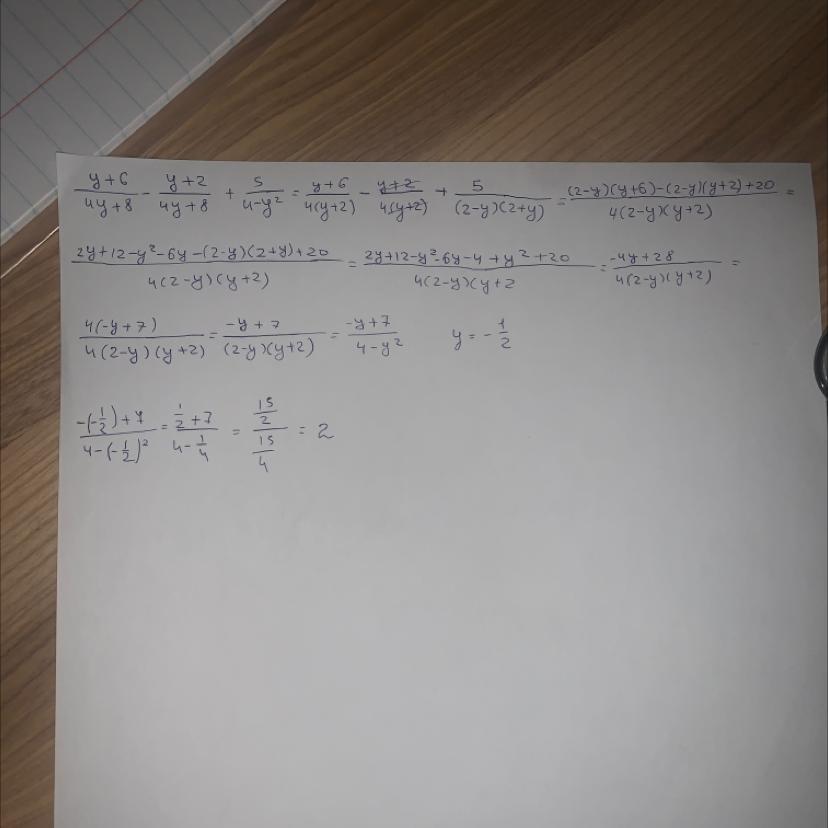 (y+6)/(4y+8) - (y+2)/(4y+8) + 5/(4-y²) = (y+6)/(4(y+2)) - (y+2)/(4(y+2)) + 5/((2-y)(2+y)) = ((2-y)(y+6)-(2-y)(y+2)+20)/(4(2-y)(y+2)) =
(2y+12-y²-6y-(2-y)(2+y)+20)/(4(2-y)(y+2)) = (2y+12-y²-6y-4+y²+20)/(4(2-y)(y+2) = (-4y+28)/(4(2-y)(y+2)) =
(4(-y+7))/(4(2-y)(y+2)) = (-y+7)/((2-y)(y+2)) = (-y+7)/(4-y²) y = -1/2
(-(-1/2)+7)/(4-(-1/2)²) = (1/2+7)/(4-1/4) = (15/2)/(15/4) = 2